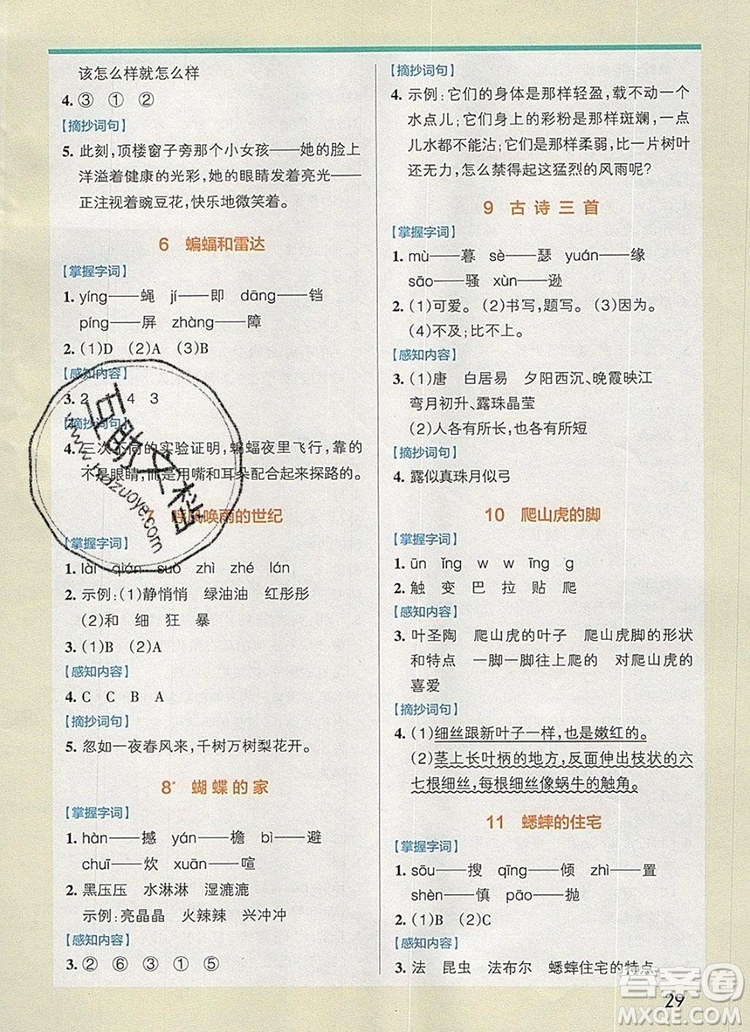 该怎么样就怎么样
4. ③ ① ②
【摘抄词句】
5. 此刻，顶楼窗子旁那个小女孩——她的脸上
洋溢着健康的光彩，她的眼睛发着亮光——
正注视着豌豆花，快乐地微笑着。
6 蝙蝠和雷达
【掌握字词】
1. yíng——蝇 jí——即 dāng——铛
píng——屏 zhàng——障
2. (1)D (2)A (3)B
【感知内容】
3. 2 4 3
【摘抄词句】
4. 三次不同的实验证明，蝙蝠夜里飞行，靠的
不是眼睛，而是用嘴和耳朵配合起来探路的。
呼风唤雨的世纪
【掌握字词】
1. lài qián suǒ zhì zhé lán
2. 示例：(1)静悄悄 绿油油 红彤彤
(2)和 细 狂 暴
3. (1)B (2)A
【感知内容】
4. C C B A
【摘抄词句】
5. 忽如一夜春风来，千树万树梨花开。
8* 蝴蝶的家
【掌握字词】
1. hàn——撼 yán——檐 bì——避
chuī——炊 xuān——喧
2. 黑压压 水淋淋 湿漉漉
示例：亮晶晶 火辣辣 兴冲冲
【感知内容】
3. ② ⑥ ③ ① ⑤
【摘抄词句】
4. 示例：它们的身体是那样轻盈，载不动一个
水点儿；它们身上的彩粉是那样斑斓，一点
儿水都不能沾；它们是那样柔弱，比一片树叶
还无力，怎么禁得起这猛烈的风雨呢？
9 古诗三首
【掌握字词】
1. mù——暮 sè——瑟 yuán——缘
sāo——骚 xùn——逊
2. (1)可爱。 (2)书写，题写。 (3)因为。
(4)不及；比不上。
【感知内容】
3. (1)唐 白居易 夕阳西沉、晚霞斜映
弯月初升、露珠晶莹
(2)人各有所长，也各有所短
【摘抄词句】
4. 露似真珠月似弓
10 爬山虎的脚
【掌握字词】
1. ūn īng q w w īng g
2. 触 变 巴 拉 贴 爬
【感知内容】
3. 叶圣陶 爬山虎的叶子 爬山虎的脚的形状
和特点 一脚一脚往上爬的 对爬山虎的
喜爱
【摘抄词句】
4. (1)细丝跟新叶子一样，也是嫩红的。
(2)茎上长叶柄的地方，反面伸出枝状的六
七根细丝，每根细丝像蜗牛的触角。
11 蟋蟀的住宅
【掌握字词】
1. sōu——搜 qīng——倾 zhì——置
shèn——慎 pāo——抛
2. (1)B (2)C
【感知内容】
3. 法 昆虫 法布尔 蟋蟀住宅的特点
29
互助文档
www.hdzuoye.com
答案圈
MXQE.COM